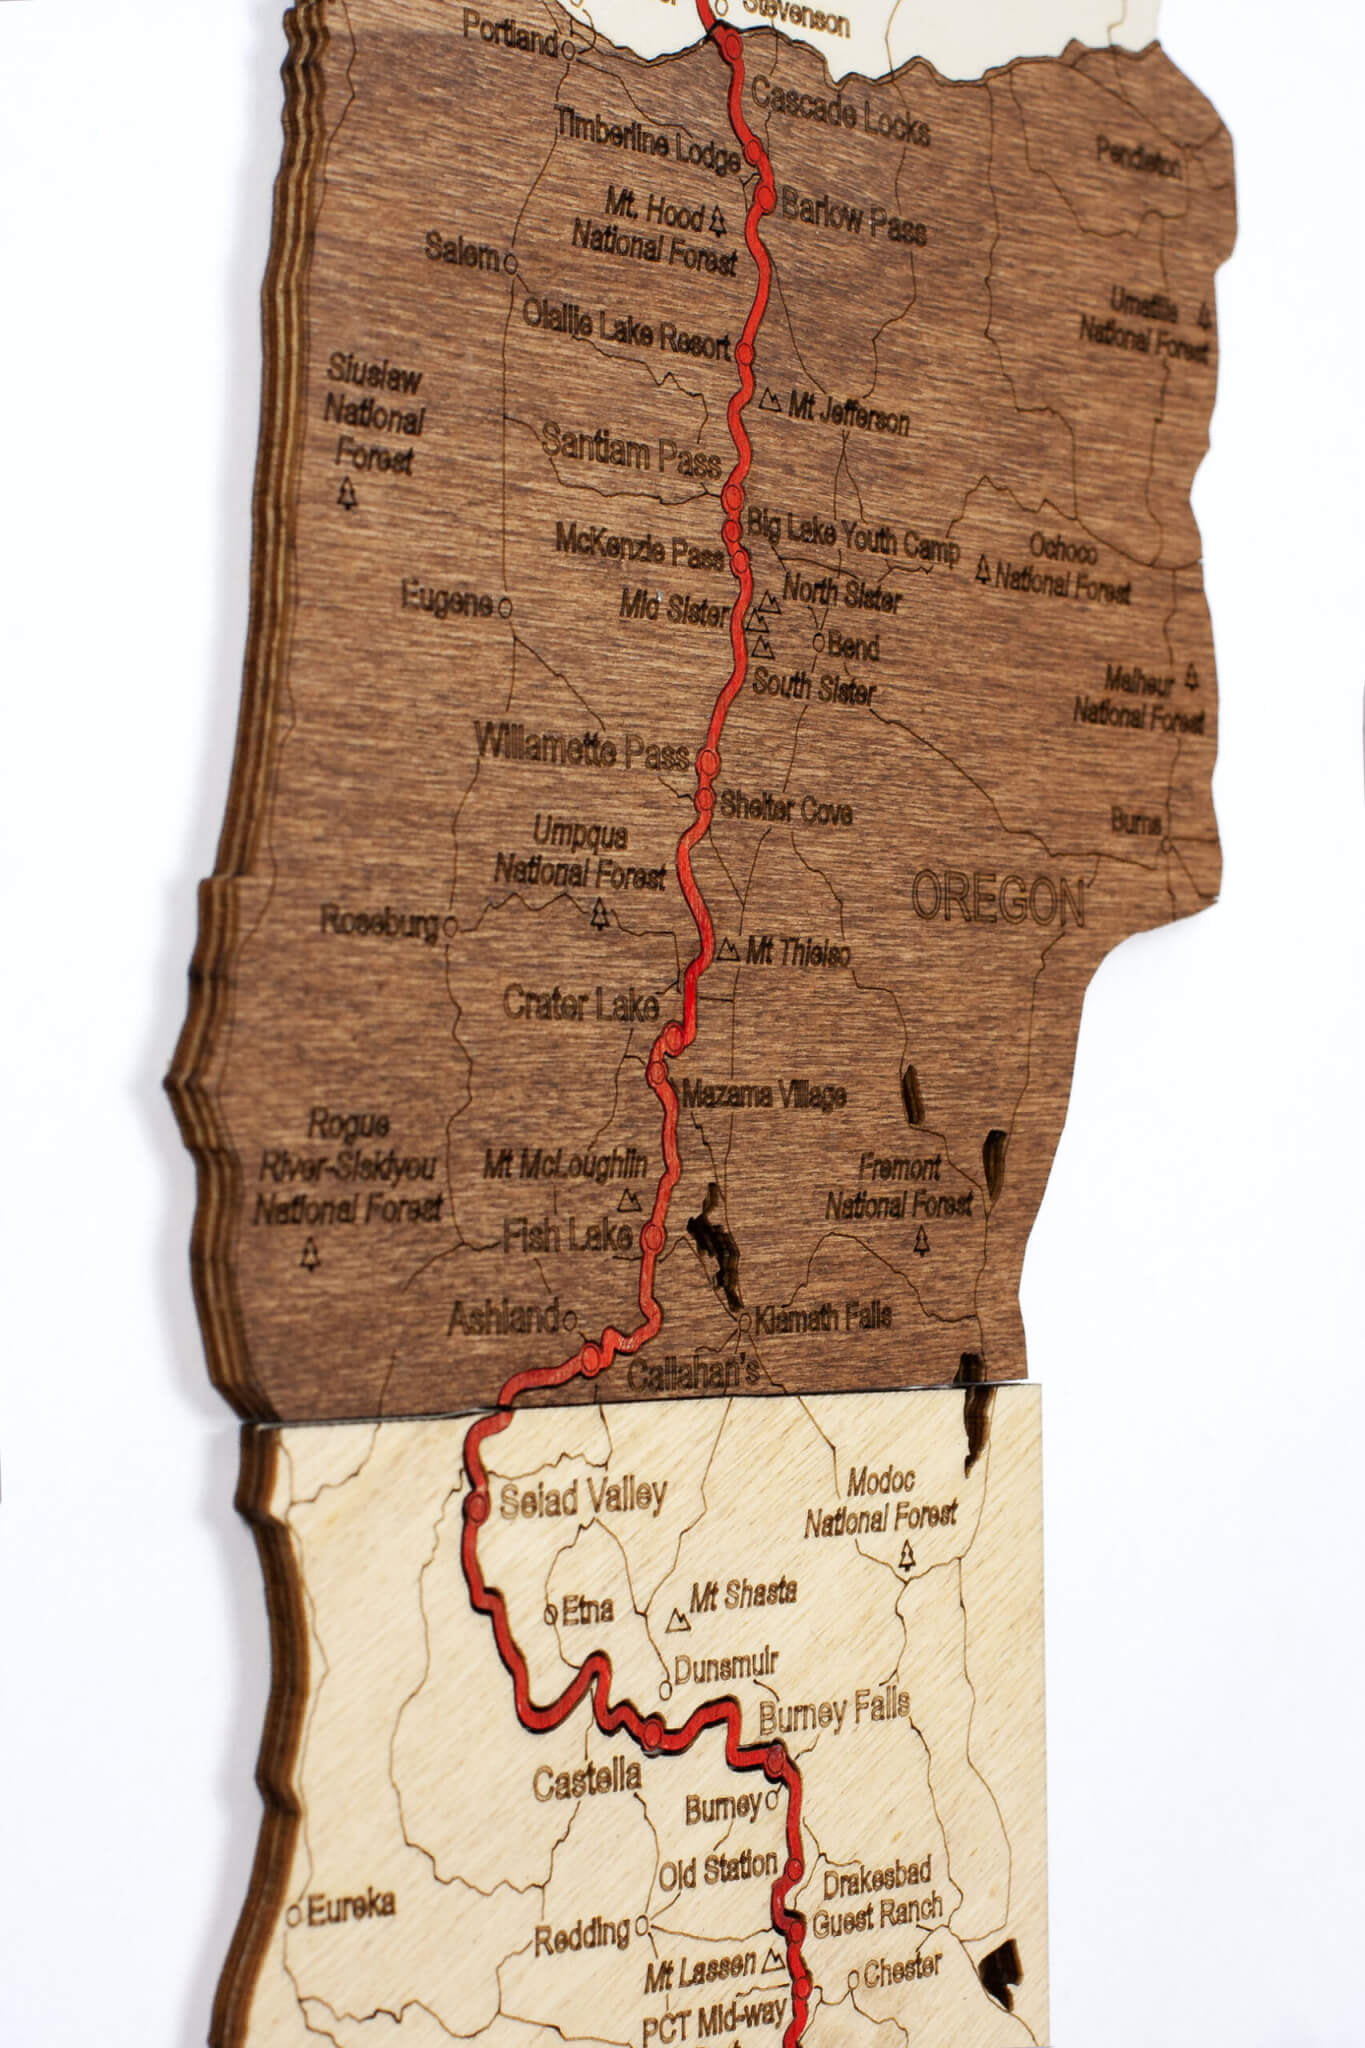 Stevenson
Portland
Cascade Locks
Timberline Lodge
Pendleton
Barlow Pass
Mt. Hood
National Forest
Salem
Umatilla
National Forest
Olallie Lake Resort
Siuslaw
National
Forest
Mt Jefferson
Santiam Pass
Big Lake Youth Camp
McKenzie Pass
Ochoco
National Forest
North Sister
Mid Sister
Eugene
Bend
South Sister
Malheur
National Forest
Willamette Pass
Shelter Cove
Umpqua
National Forest
Burns
OREGON
Roseburg
Mt Thielso
Crater Lake
Mazama Village
Rogue
River-Siskiyou
National Forest
Mt McLoughlin
Fremont
National Forest
Fish Lake
Ashland
Klamath Falls
Callahan's
Seiad Valley
Modoc
National Forest
Etna
Mt Shasta
Dunsmuir
Burney Falls
Castella
Burney
Old Station
Drakesbad
Guest Ranch
Eureka
Redding
Mt Lassen
Chester
PCT Mid-way